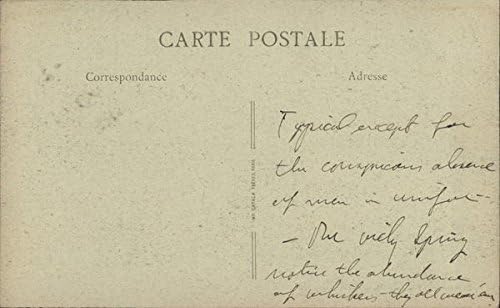 CARTE POSTALE
Correspondance
Adresse
Typical except for
the conspicuous absence
of men in uniform
— One
notice the abundance
of whiskers - they all wear 'em